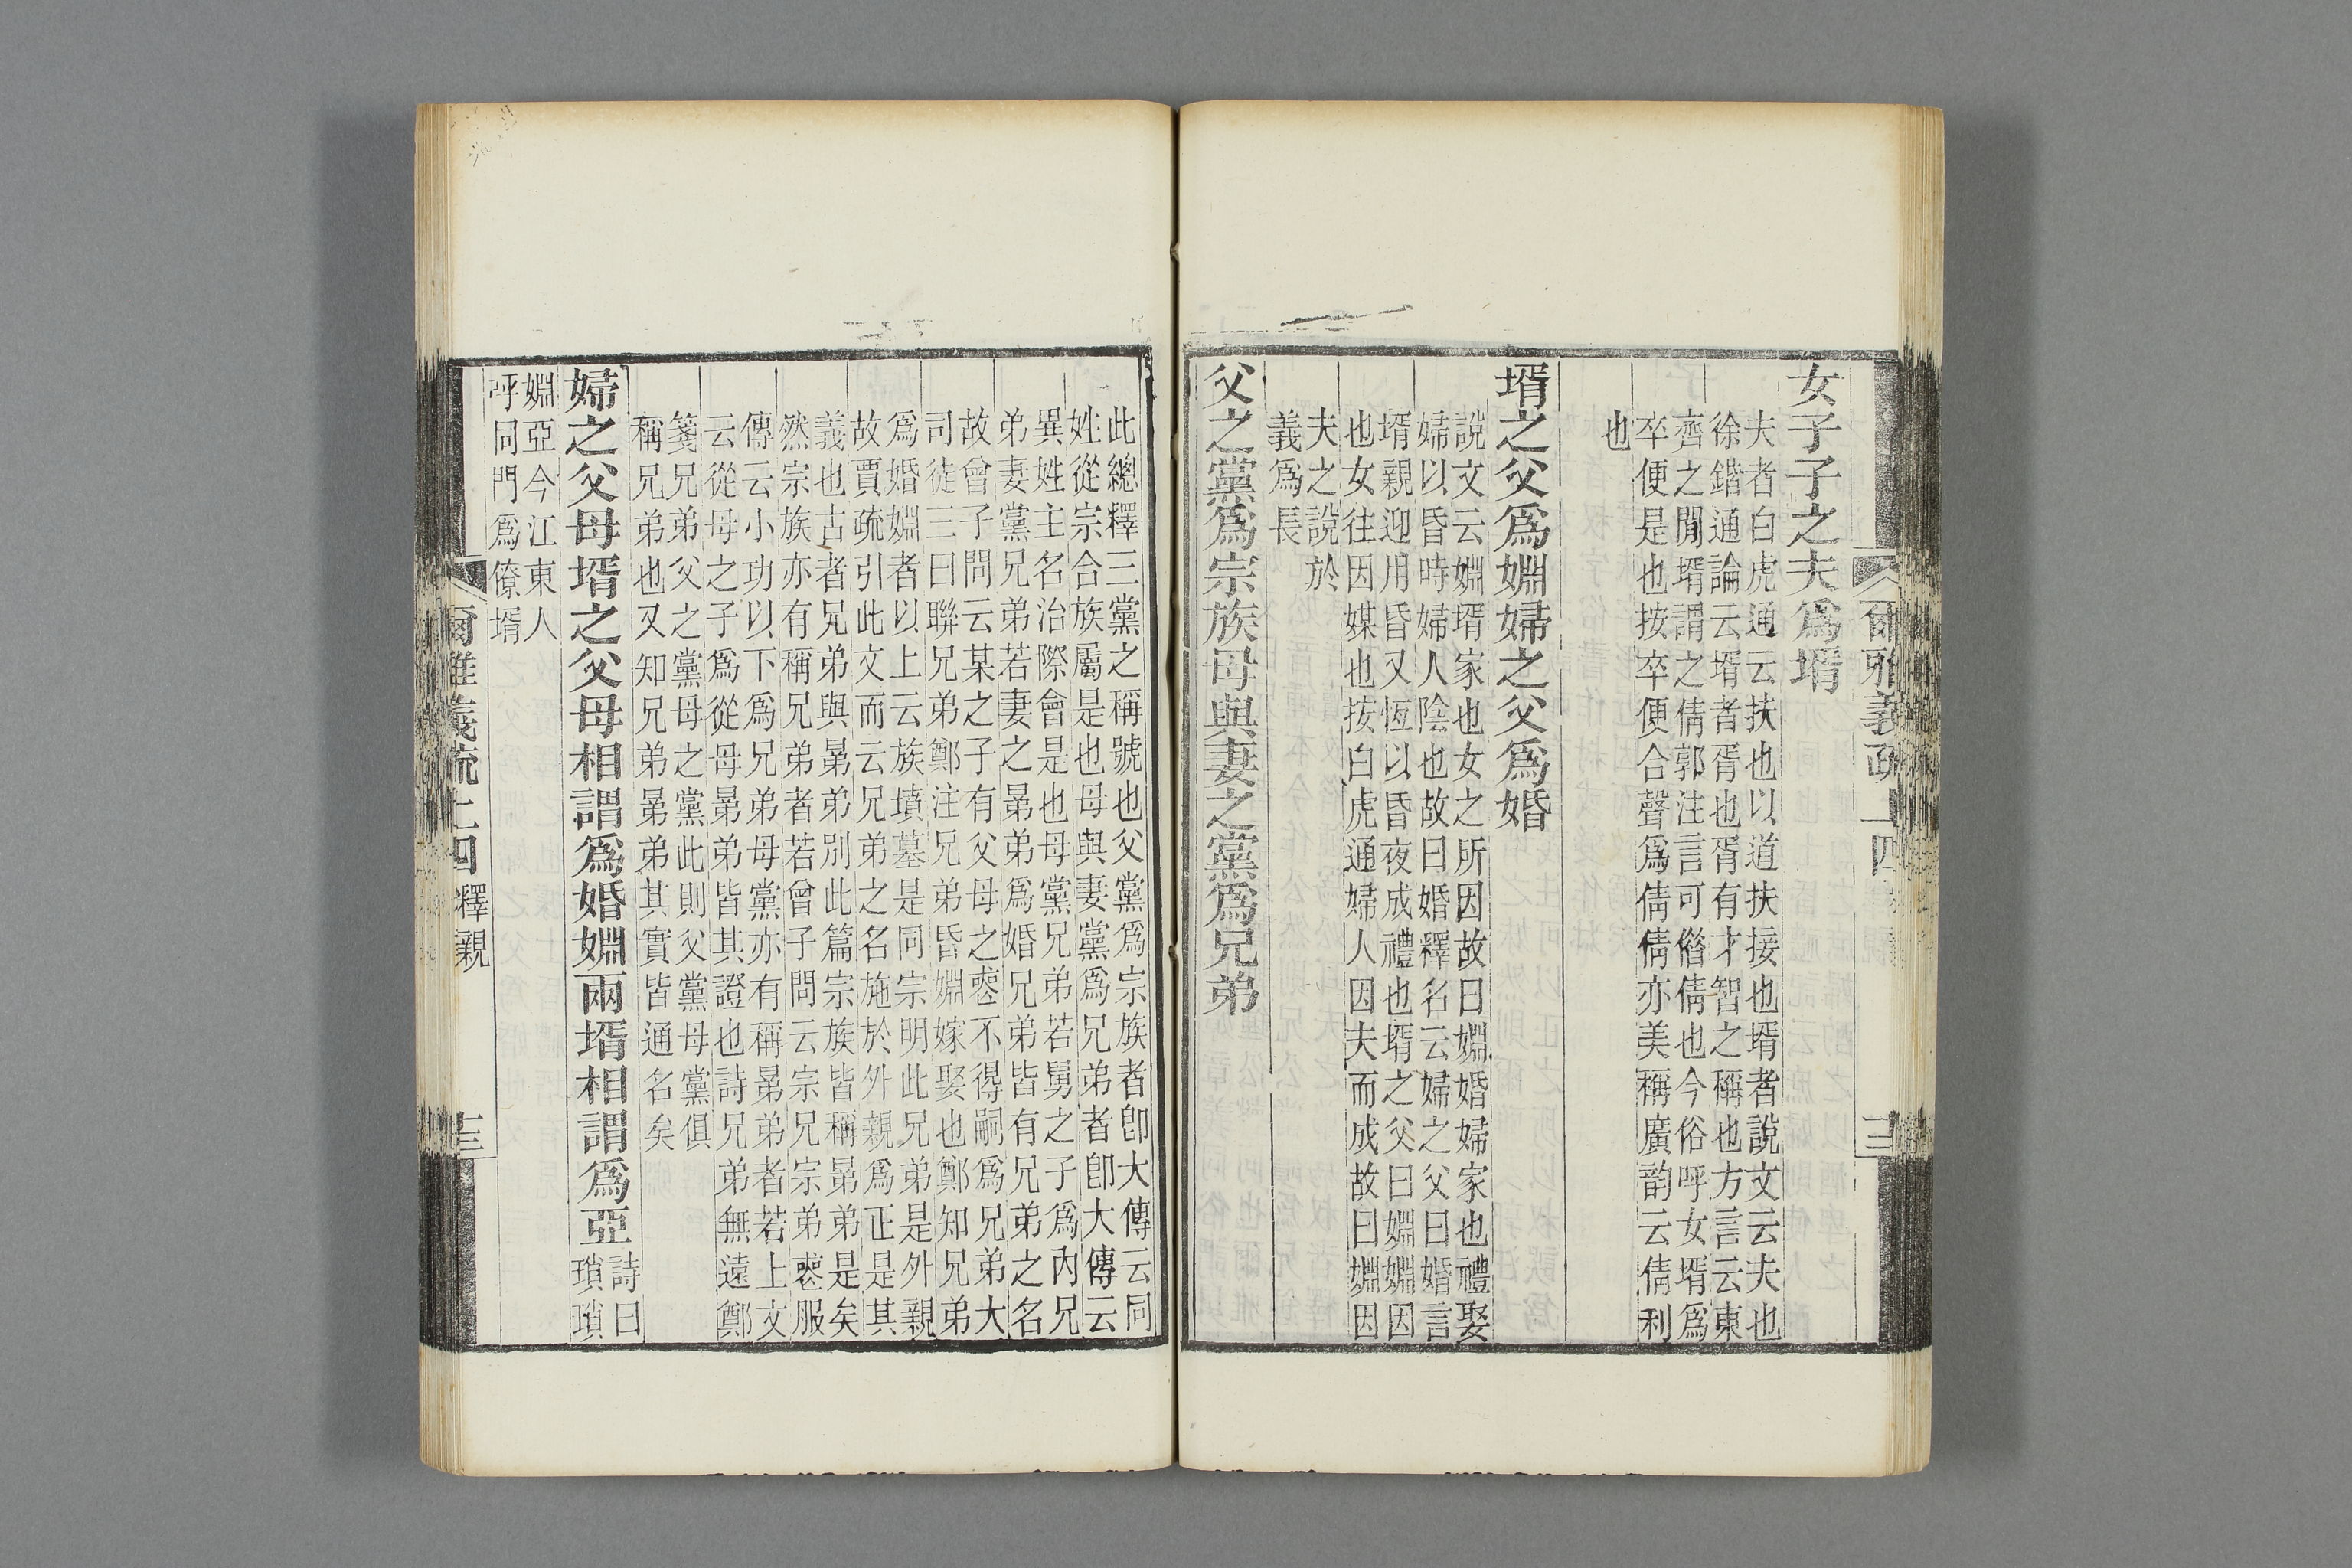 女子子之夫爲壻
夫者白虎通云扶也以道扶接也壻者說文云夫也
徐鍇通論云壻者胥也胥有才智之稱也方言云東
齊之閒壻謂之倩郭注言可偺倩也今俗呼女壻爲
卒便是也按卒便合聲爲倩倩亦美稱廣韵云倩利
也
壻之父爲婣婦之父爲婚
說文云婣壻家也女之所因故曰婣婚婦家也禮娶
婦以昏時婦人陰也故曰婚釋名云婦之父曰婚言
壻親迎用昏又恆以昏夜成禮也壻之父曰婣婣因
也女往因媒也按白虎通婦人因夫而成故曰婣因
夫之說於
義爲長
父之黨爲宗族母與妻之黨爲兄弟
爾雅義疏上四
此總釋三黨之稱號也父黨爲宗族者卽大傳云同
姓從宗合族屬是也母與妻黨爲兄弟者卽大傳云
異姓主名治際會是也母黨兄弟若舅之子爲內兄
弟妻黨兄弟若妻之晜弟爲婚兄弟皆有兄弟之名
故曾子問云某之子有父母之喪不得嗣爲兄弟大
司徒三曰聯兄弟鄭注兄弟昏婣嫁娶也鄭知兄弟
爲婚婣者以上云族墳墓是同宗明此兄弟是外親
故賈疏引此文而云兄弟之名施於外親爲正是其
義也古者兄弟與晜弟別此篇宗族皆稱晜弟是矣
然宗族亦有稱兄弟者若曾子問云宗兄宗弟喪服
傳云小功以下爲兄弟母黨亦有稱晜弟者若上文
云從母之子爲從母晜弟皆其證也詩兄弟無遠鄭
箋兄弟父之黨母之黨此則父黨母黨俱
稱兄弟也又知兄弟晜弟其實皆通名矣
婦之父母壻之父母相謂爲婚婣兩壻相謂爲亞
詩曰
瑣瑣
婣亞今江東人
呼同門爲僚壻
爾雅義疏上四 釋親 十三